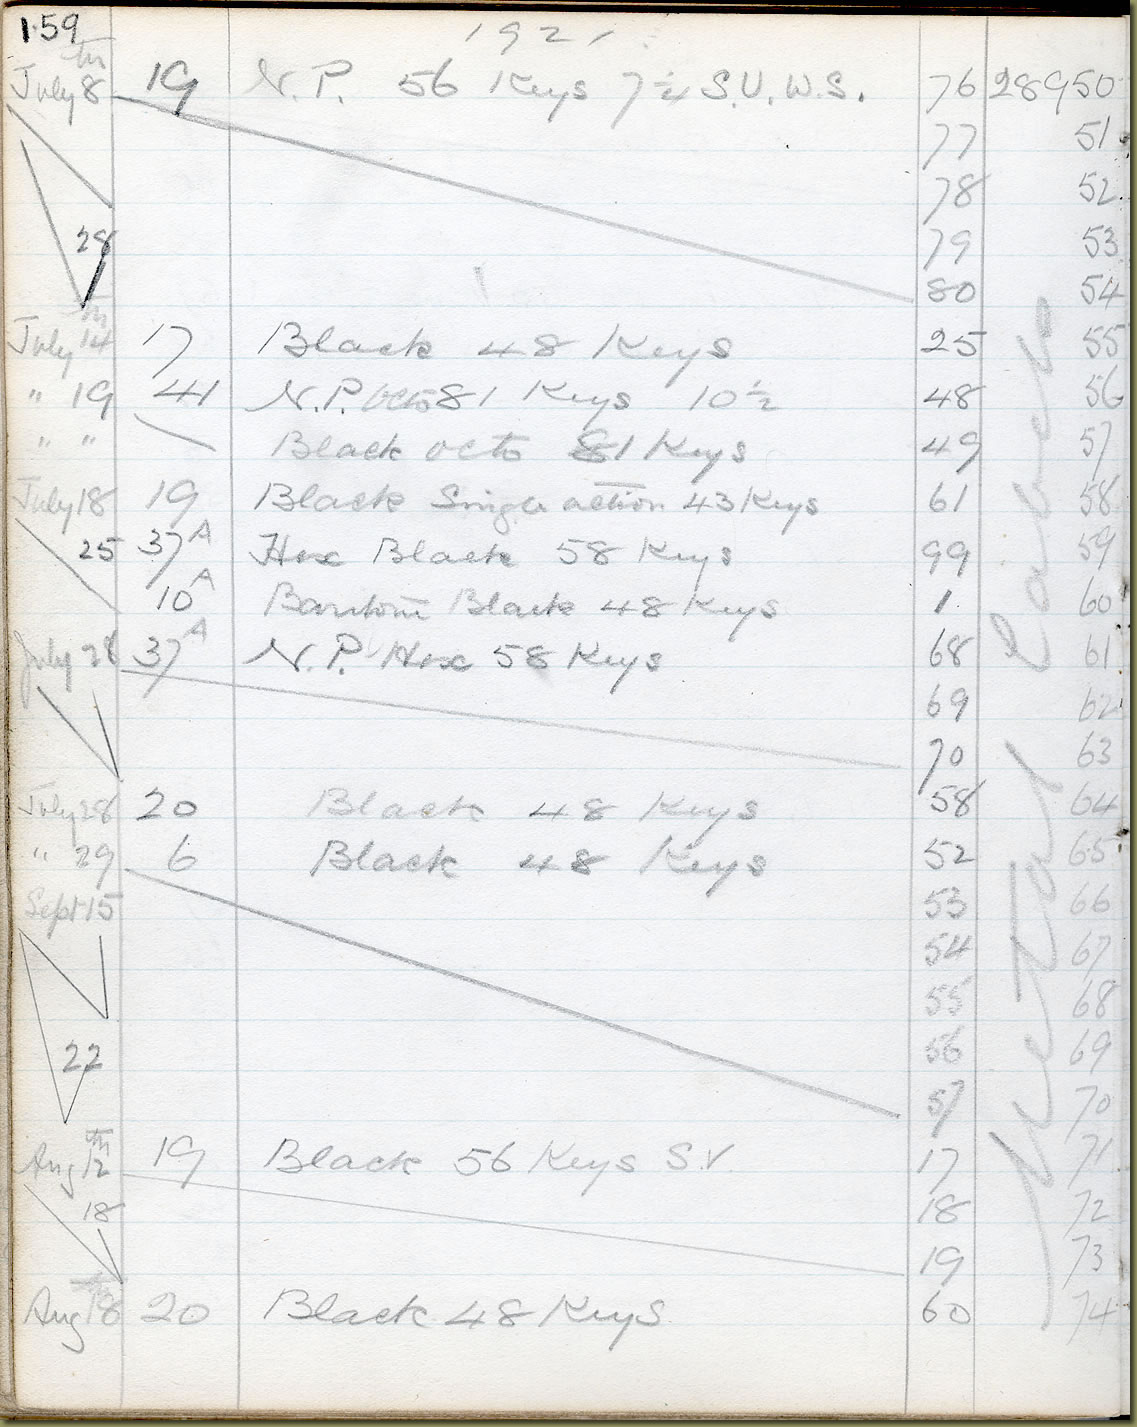 1.59
1921
July 8th 19 N.P. 56 Keys 7½ S.V. W.S. 76 28950
77 51
78 52
28 79 53
80 54
July 14th 17 Black 48 Keys 25 55
" 19 41 N.P. Octo 81 Keys 10½ 48 56
" " Black octo 81 Keys 49 57
July 18 19 Black Single action 43 Keys 61 58
25 37A Hex Black 58 Keys 99 59
10A Bantom Black 48 Keys 1 60
July 28 37A N.P. Hex 58 Keys 68 61
69 62
70 63
July 28 20 Black 48 Keys 58 64
" 29 6 Black 48 Keys 52 65
Sept 15 53 66
54 67
55 68
22 56 69
57 70
Aug 12th 19 Black 56 Keys S.V 17 71
18 18 72
19 73
Aug 18th 20 Black 48 Keys 60 74